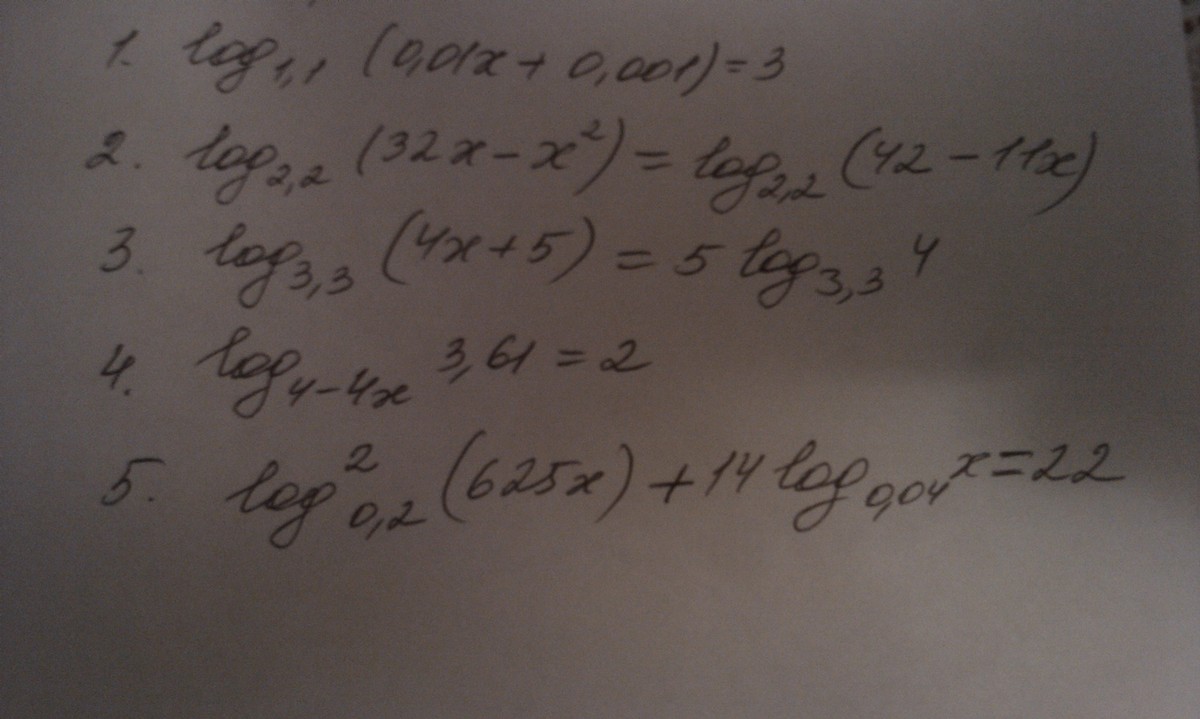 1. log₁,₁ (0,01x + 0,001) = 3
2. log₂,₂ (32x – x²) = log₂,₂ (42 – 11x)
3. log₃,₃ (4x + 5) = 5 log₃,₃ 4
4. log₄₋₄ₓ 3,61 = 2
5. log²₀,₂ (625x) + 14 log₀,₀₄ x = 22